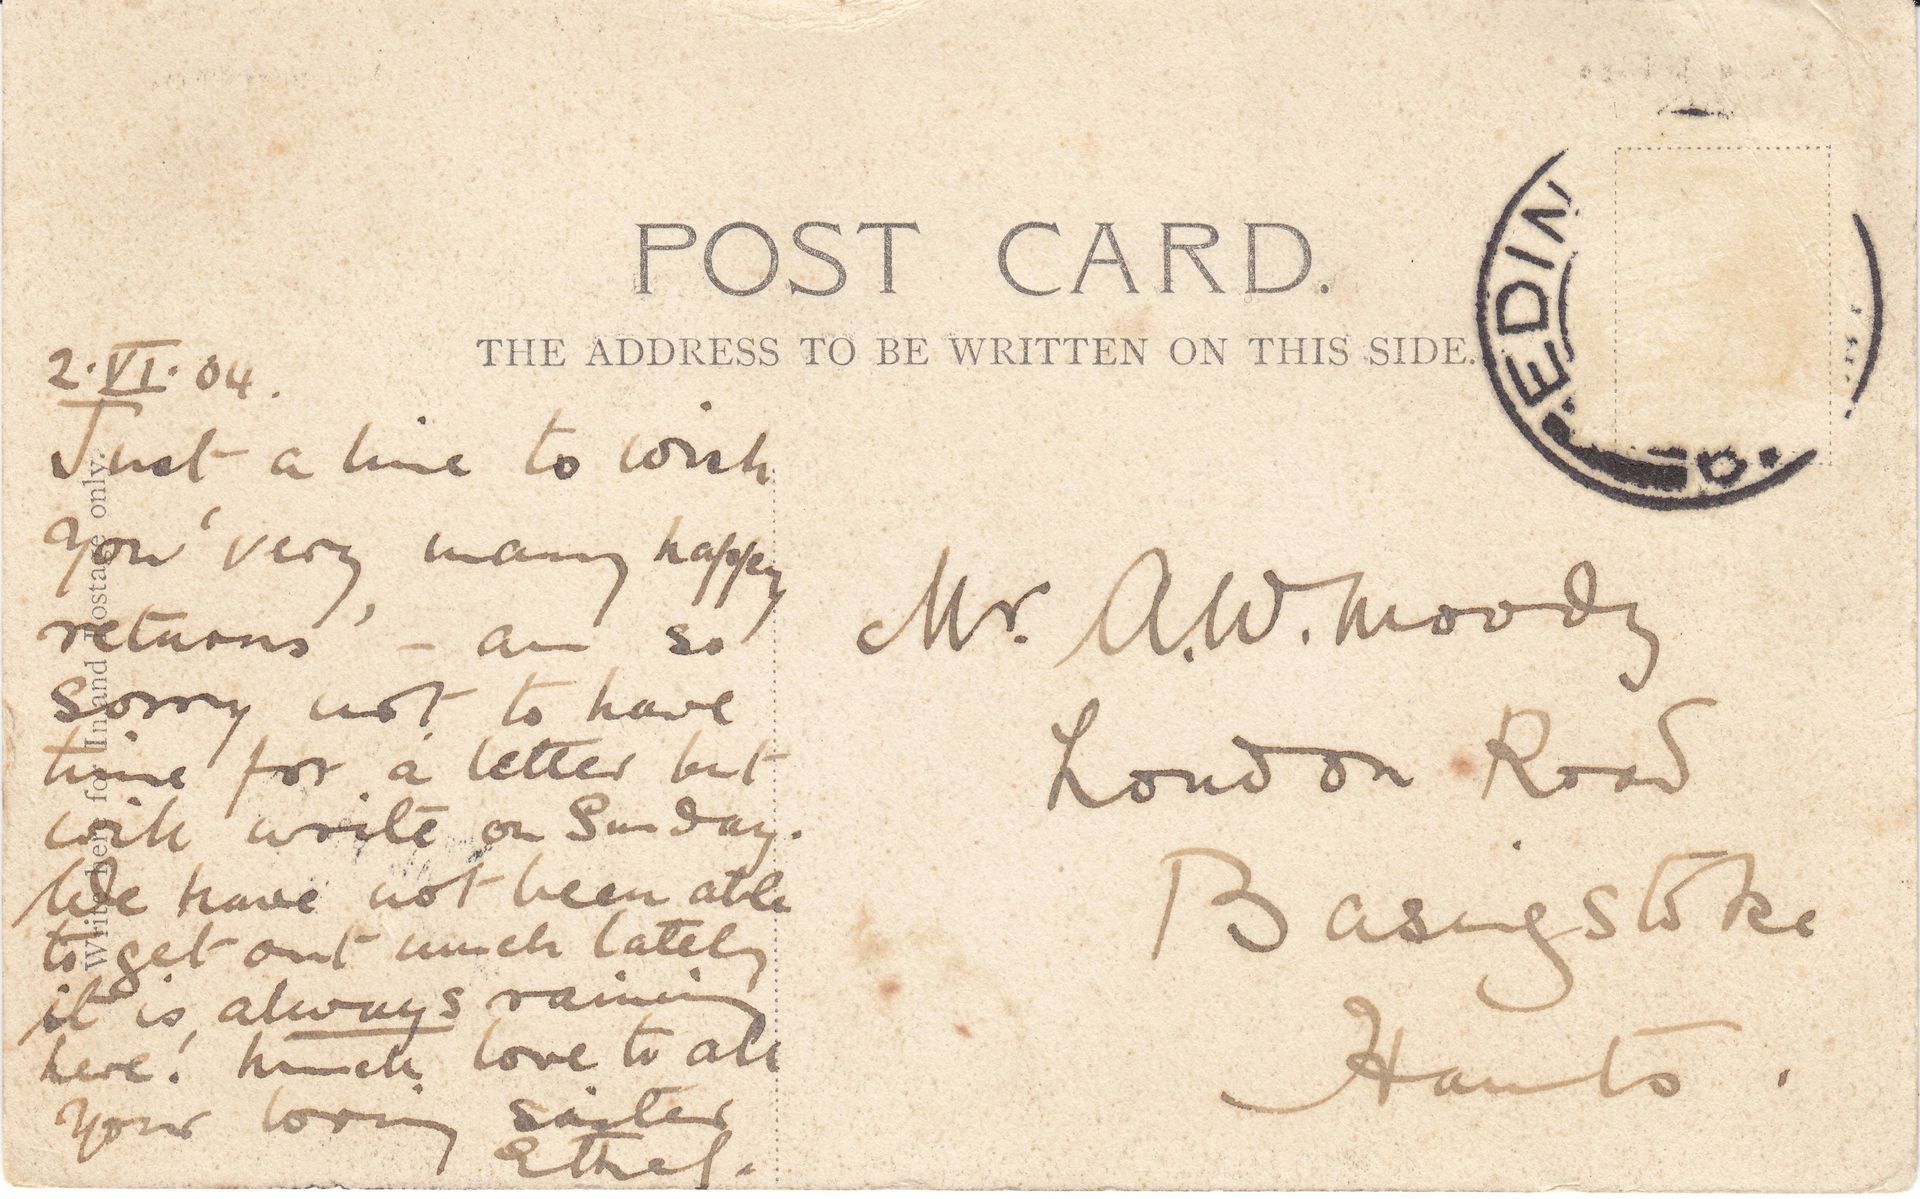 POST CARD.
THE ADDRESS TO BE WRITTEN ON THIS SIDE.
EDIN
2·VI·04.
Just a line to wish
you 'very many happy
returns' - am so
sorry not to have
time for a letter but
will write on Sunday.
We have not been able
to get out much lately
it is always raining
here! Much love to all
your loving sister
Ethel.
Write here for Inland Postage only.
Mr. A. W. Moody
London Road
Basingstoke
Hants.